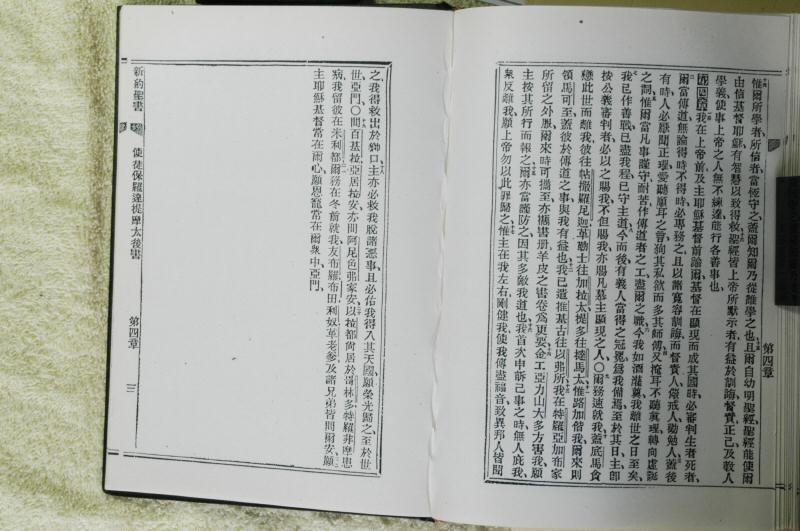 第四章
惟爾所學者、所信者、當恆守之、蓋爾知爾乃從誰學之也、且爾自幼明聖經、聖經能使爾
由信基督耶穌有智慧以致得救、聖經皆上帝所默示者、有益於訓誨督責正己及敎人
學義、使事上帝之人無不練達、能行各善事也、
第四章 我在上帝前及主耶穌基督前諭爾、基督在顯現而成其國時、必審判生者死者、
爾當傳道、無論得時不得時、必專務之、且以諸寬容訓誨而督責人、儆戒人、勸勉人、蓋後
有時人必厭聞正理、愛聽順耳之言、徇其私欲而多其師傅、又掩耳不聽眞理、轉向虛誕
之言、惟爾當凡事謹守、耐苦、作傳道者之工、盡爾之職、今我如酒灌奠、我離世之日至矣、
我已作善戰、已盡我程、已守主道、今而後有義人當得之冠冕、爲我備焉、至於其日、主卽
按公義審判者、必以之賜我、不但賜我、亦賜凡慕主顯現之人、〇爾務速就我、蓋底馬貪
戀此世而離我、彼往帖撒羅尼迦、革勒士往加拉太、提多往撻馬太、惟路加偕我、爾來則
領馬可至、蓋彼於傳道之事與我有益也、我已遣推基古往以弗所、我在特羅亞加布家
所留之外 爾來時可攜至、亦攜書册、羊皮之書卷爲更要、金工亞力山大多方害我、願
主按其所行而報之、爾亦當謹防之、因其多敵我道也、我首次申訴己事之時、無人庇我、
衆反離我、願上帝勿以此罪歸之、惟主在我左右、剛健我、使我傳盡福音、致異邦人皆聞
之、我得救出於獅口、主亦必救我脫諸惡事、且必佑我得入其天國、願榮光歸之至於世
世、亞門、〇問百基拉、亞居拉安、亦問阿尼色弗家安、以拉都尙居於哥林多、特羅非摩患
病、我留彼在米利都、爾務在冬前就我、友布羅、布田、利奴、革老爹、及諸兄弟皆問爾安、願
主耶穌基督常在爾心、願恩寵常在爾衆中、亞門、
新約聖書 使徒保羅達提摩太後書 第四章 三